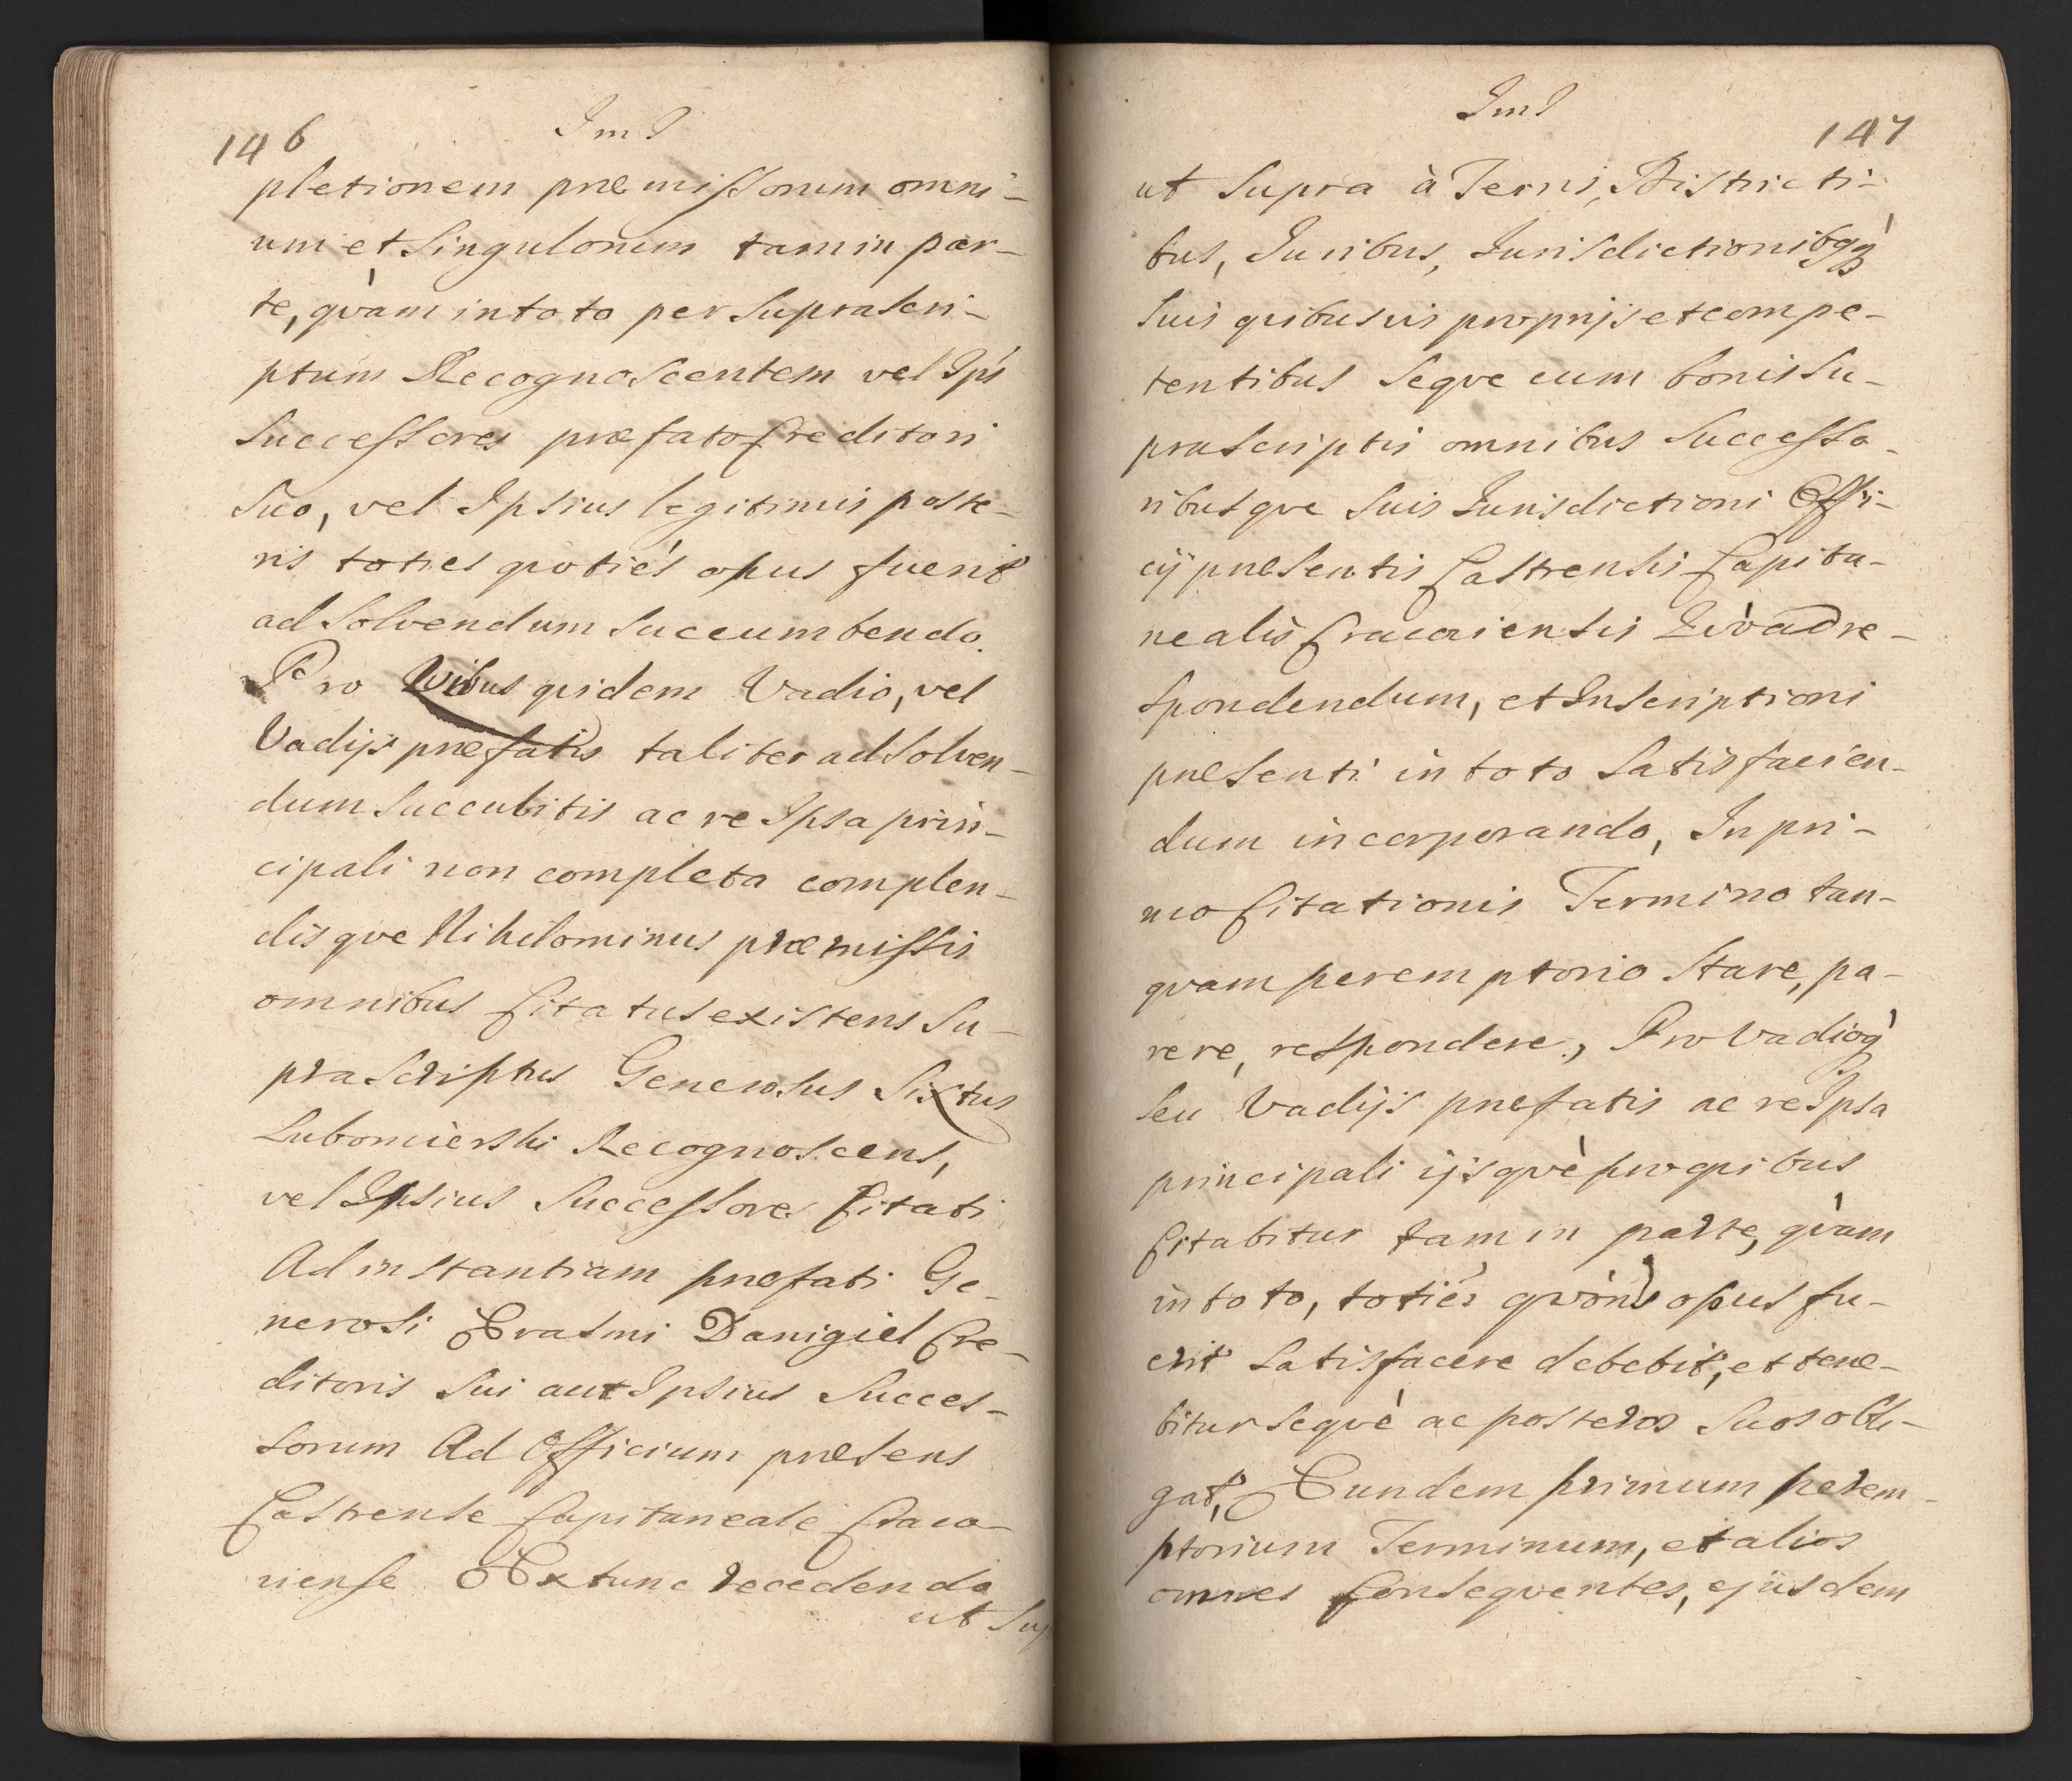 146
pletionem præmissorum omni-
um et Singulorum tam in par-
te, qvàm in toto per Suprascri-
ptum Recognoscentem vel Ips
Successores præfato Creditori
Suo, vel Ipsius legitimis poste-
ris toties qvoties opus fuerit
ad Solvendum Succumbendo.
Pro qvibus qvidem Vadio, vel
Vadijs præfatis taliter ad Solven-
dum Succubitis ac re Ipsa prin-
cipali non completa complen-
disqve Nihilominus præmissis
omnibus Citatus existens Su-
prascriptus Generosus Sixtus
Lubomierski Recognoscens,
vel Ipsius Successores Citati
Ad instantiam præfati Ge-
nerosi Erasmi Danigiel Cre-
ditoris Sui aut Ipsius Succes-
sorum Ad Officium præsens
Castrense Capitaneale Craco-
viense Extunc recedendo
ut Sup
147
ut Supra à Terris, Districti-
bus, Juribus, Jurisdictionibqq
Suis qvibusvis proprijs et compe-
tentibus Seqve cum bonis Su-
prascriptis omnibus Successo-
ribusqve Suis Jurisdictioni Offi-
cij præsentis Castrensis Capita-
nealis Cracoviensis qvò ad re-
spondendum, et Inscriptioni
præsenti in toto Satisfacien-
dum incorporando, In pri-
mo Citationis Termino tan-
qvam peremptorio Stare, pa-
rere, respondere, Pro Vadioq
Seu Vadijs præfatis ac re Ipsa
principali ijsqvè pro qvibus
Citabitur tam in parte, qvàm
in toto, toties opus fu-
erit Satisfacere debebit, et tene-
bitur Seqvè ac posteros Suos obli-
gat, Eundem primum perem-
ptorium Terminum, et alios
omnes Conseqventes, ejusdem